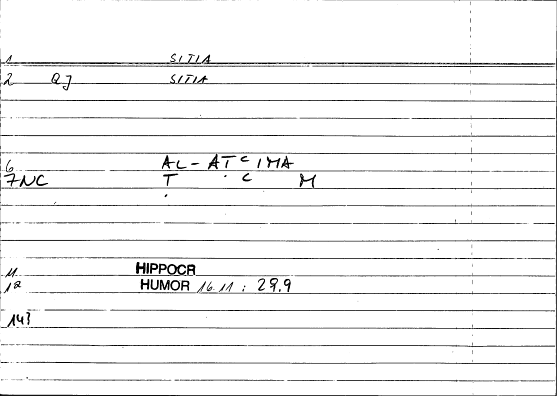 1 SITIA
2 QJ SITIA
6 AL-ATCIMA
7NC T . C M
.
11 HIPPOCR
12 HUMOR 16.11 : 29.9
143